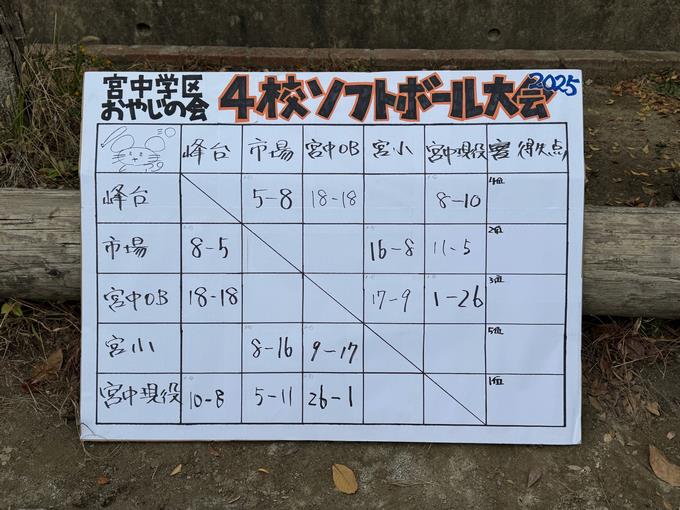 宮中学区
おやじの会
4校ソフトボール大会
2025
峰台 市場 宮中OB 宮小 宮中現役 得失点
峰台 5-8 18-18 8-10 4位
市場 8-5 16-8 11-5 2位
宮中OB 18-18 17-9 1-26 3位
宮小 8-16 9-17 5位
宮中現役 10-8 5-11 26-1 1位